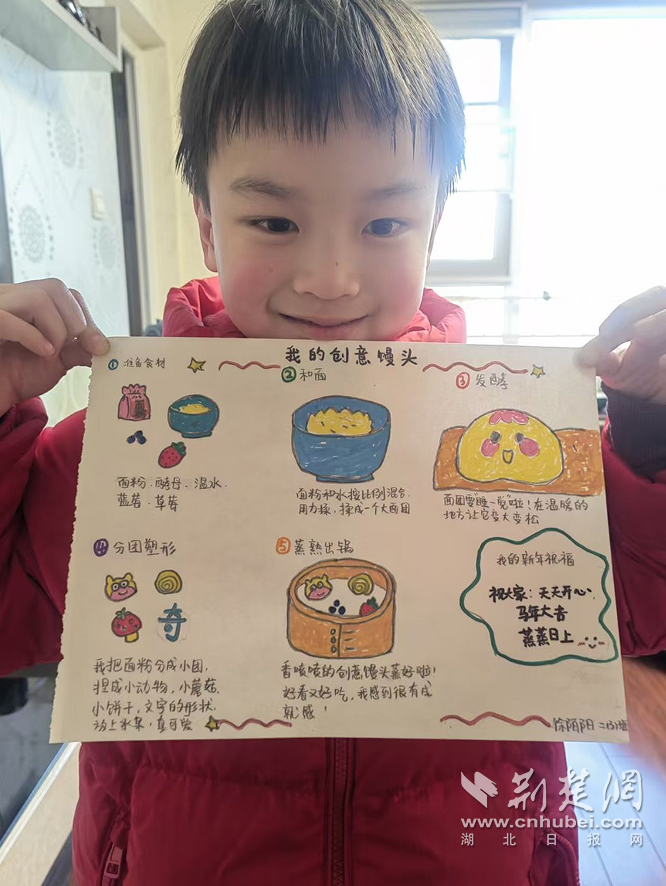 我的创意馒头
① 准备食材
面粉、酵母、温水、
蓝莓、草莓
② 和面
面粉和水按比例混合,
用力揉,揉成一个大面团
③ 发酵
面团要“睡一觉”啦!在温暖的
地方让它变大变松
④ 分团塑形
奇
我把面粉分成小团,
捏成小动物,小蘑菇
小饼干,文字的形状,
⑤ 蒸熟出锅
香喷喷的创意馒头蒸好啦!
好看又好吃,我感到很有成
就感!
我的新年祝福
祝大家:天天开心、
马年大吉
蒸蒸日上
荆楚网
www.cnhubei.com
湖北日报网